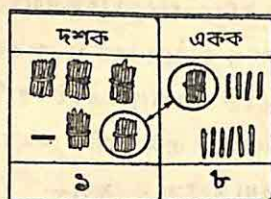 দশক একক
১ ৮